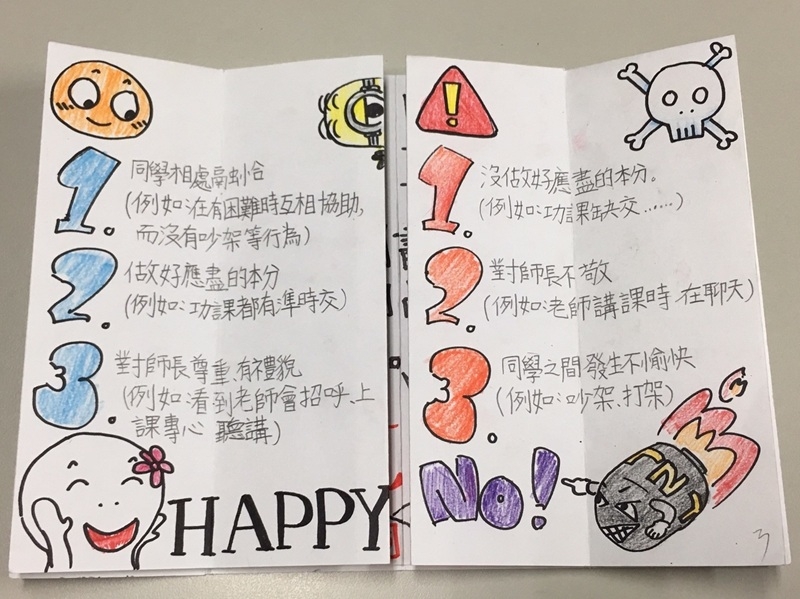 1.
同學相處融洽
(例如:在有困難時互相協助,
而沒有吵架等行為)
2.
做好應盡的本分
(例如:功課都有準時交)
3.
對師長尊重、有禮貌
(例如:看到老師會招呼、上
課專心 聽講)
HAPPY
1.
沒做好應盡的本分。
(例如:功課缺交……)
2.
對師長不敬
(例如:老師講課時 在聊天)
3.
同學之間發生不愉快
(例如:吵架、打架)
NO!
TNT
3